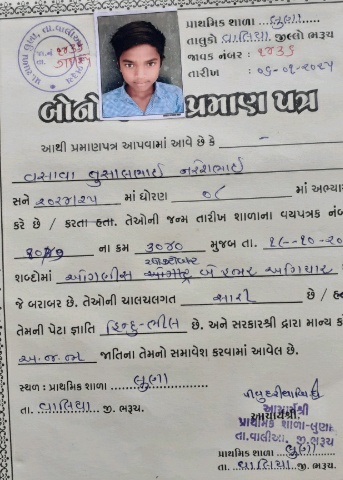 પ્રાથમિક શાળા લુણા
તાલુકો વાલિયા જીલ્લો ભરૂચ
જાવક નંબર : ૧૪૩૬
તારીખ : ૦૬-૦૧-૨૦૨૫
બોનો પ્રમાણ પત્ર
આથી પ્રમાણપત્ર આપવામાં આવે છે કે
વસાવા નરેશભાઈ
સને ૨૦૨૪/૨૫ માં ધોરણ ૦૮ માં અભ્યા
કરે છે / કરતા હતા. તેઓની જન્મ તારીખ શાળાના વયપત્રક નંબ
ના ક્રમ ૩૦૪૦ મુજબ તા. ૧૯-૧૦-૨૦
ઓક્ટોબર
શબ્દોમાં ઓગણીસ બે હજાર અગિયાર
જે બરાબર છે. તેઓની ચાલચલગત સારી છે / હ
તેમની પેટા જ્ઞાતિ હિન્દુ-ભીલ છે. અને સરકારશ્રી દ્વારા માન્ય ક
અ.જ.જા જાતિના તેમનો સમાવેશ કરવામાં આવેલ છે.
સ્થળ : પ્રાથમિક શાળા લુણા
તા. વાલિયા જી. ભરૂચ.
આચાર્યશ્રી
આચાર્યશ્રી.
પ્રાથમિક શાળા-લુણા
તા.વાલીઆ. જી.ભરૂચ
પ્રાથમિક શાળા લુણા
તા. વાલિયા જી. ભરૂચ.